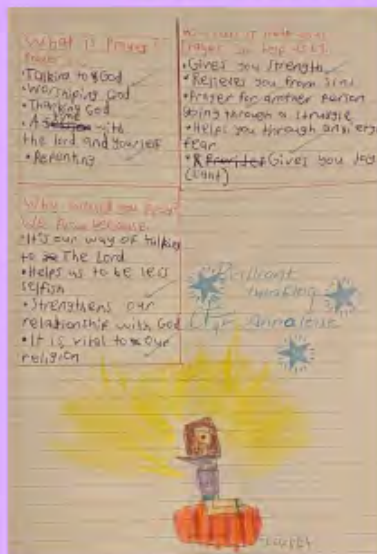 What is Praying?
Prayer
• Talking to God
• Worshiping God
• Thanking God
• A time with
the lord and yourself
• Repenting
Prayer can help us by
• Gives you strength
• Relieves you from sins
• Prayer for another person
going through a struggle
• Helps you through anxiety
fear
• Gives you joy
(Light)
Why should you pray?
We Pray because
• It's our way of talking
to The Lord
• Helps us to be less
selfish
• Strengthens our
relationship with God
• It is vital to our
religion
Brilliant
thinking
Annaleise